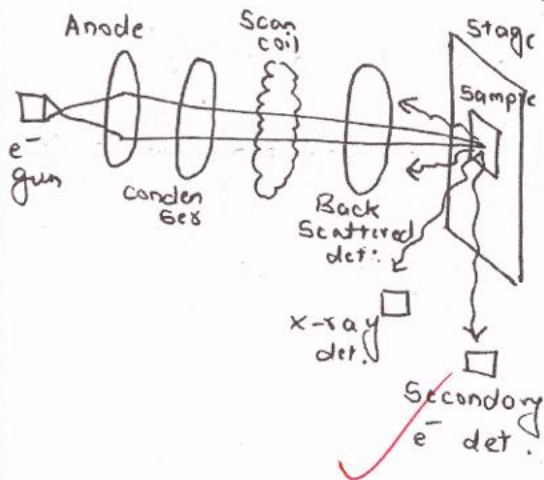 Anode
Scan
coil
Stage
Sample
e⁻
gun
conden
ser
Back
Scattired
det.
x-ray
det.
Secondory
e⁻ det.